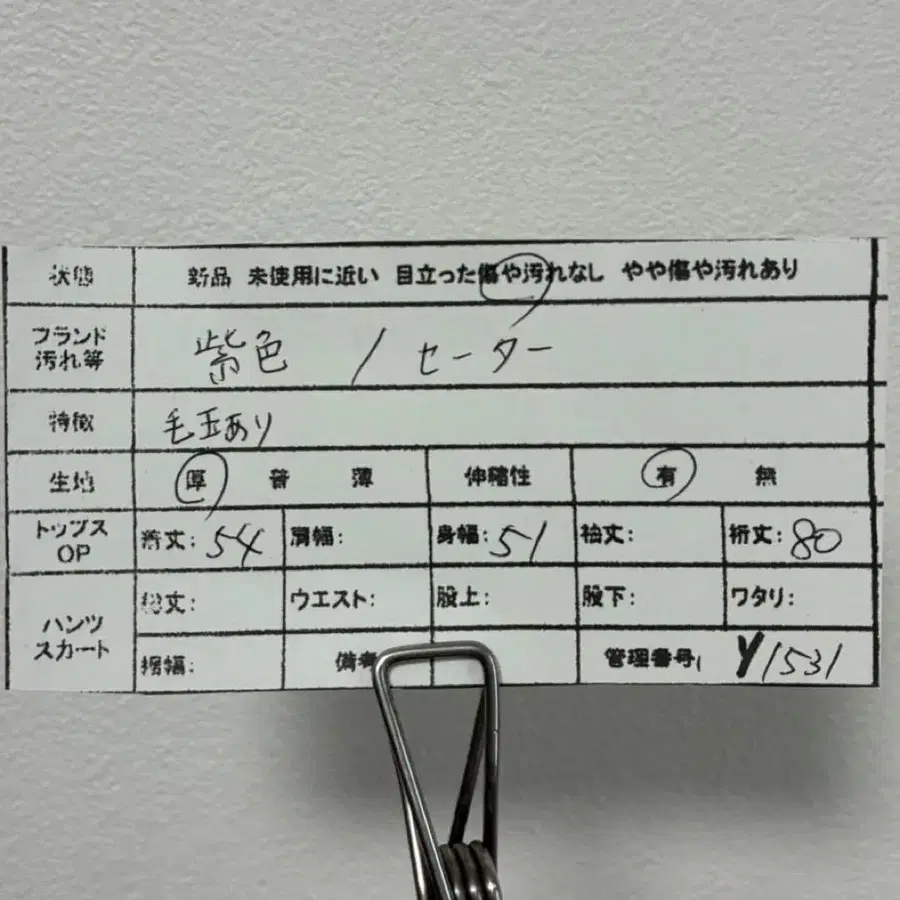 状態 新品 未使用に近い 目立った傷や汚れなし やや傷や汚れあり
ブランド
汚れ等 紫色 / セーター
特徴 毛玉あり
生地 厚 普 薄 伸縮性 有 無
トップス
OP 着丈: 54 肩幅: 身幅: 51 袖丈: 裄丈: 80
パンツ
スカート 総丈: ウエスト: 股上: 股下: ワタリ:
裾幅: 備考 管理番号: Y1531